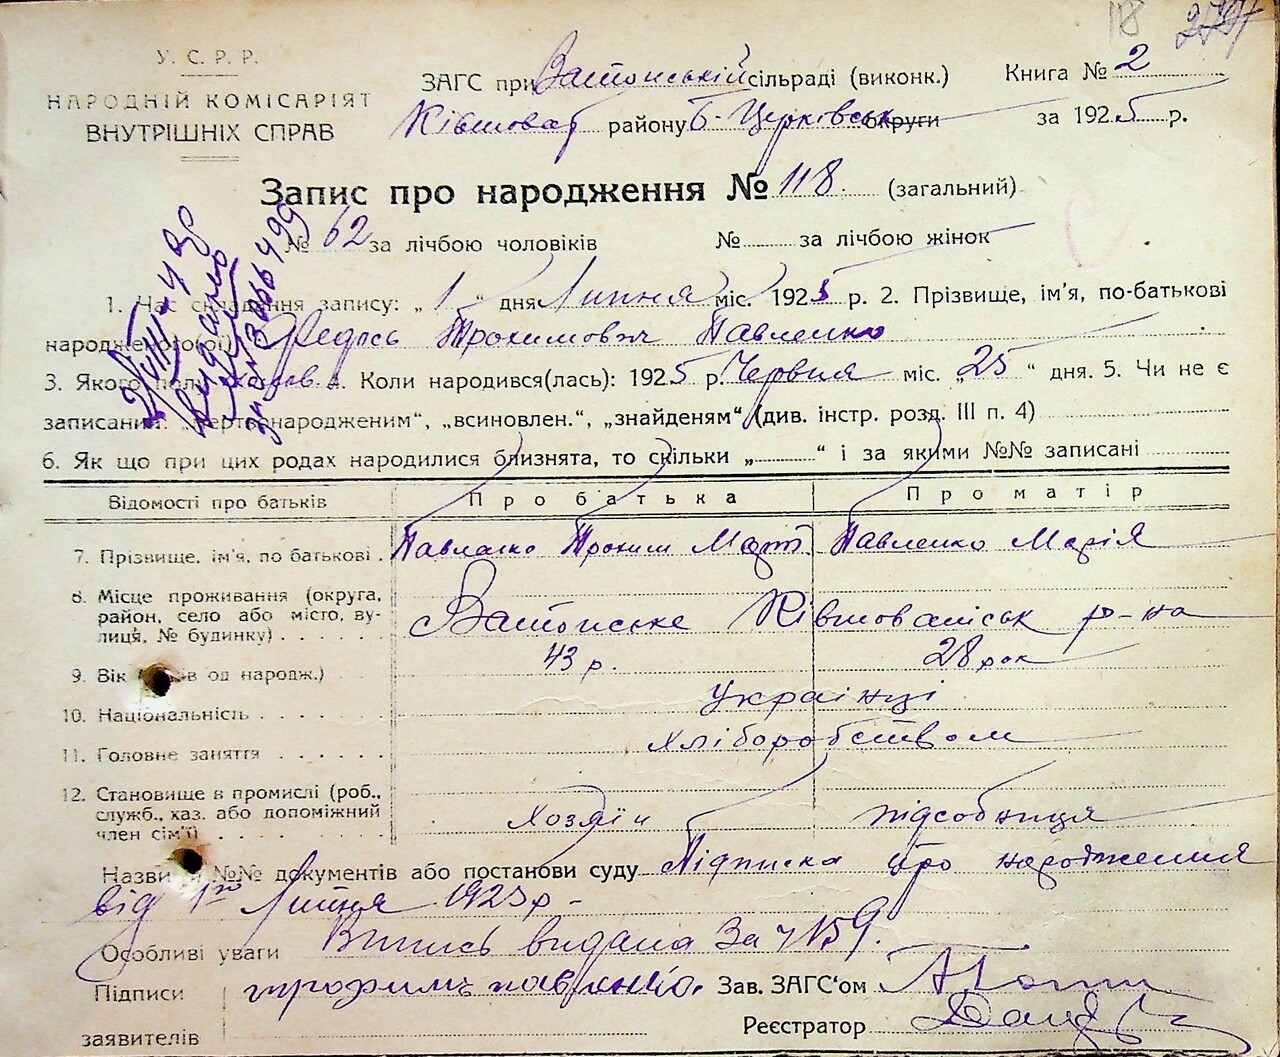 118
У. С. Р. Р.
НАРОДНІЙ КОМІСАРІЯТ
ВНУТРІШНІХ СПРАВ
ЗАГС при сільраді (виконк.)
Книга № 2
району Б-Церковськ округи
за 1925 р.
Запис про народження № 118. (загальний)
№ 62 за лічбою чоловіків № за лічбою жінок
1. Час складення запису: „1“ дня Липня міс. 1925 р. 2. Прізвище, ім'я, по-батькові
народженого(ої) Федось Трохимович Павленко
3. Якого полу 4. Коли народився(лась): 1925 р. Червня міс. „25“ дня. 5. Чи не є
записаний: „мертвонародженим“, „всиновлен.“, „знайденям“ (див. інстр. розд. III п. 4)
6. Як що при цих родах народилися близнята, то скільки „ “ і за якими №№ записані
Відомості про батьків Про батька Про матір
7. Прізвище, ім'я, по батькові Павленко Трохим Март. Павленко Марія
8. Місце проживання (округа,
район, село або місто, ву-
лиця, № будинку)
р-на
9. Вік од народж.) 43 р. 28 рок
10. Національність Українці
11. Головне заняття хліборобством
12. Становище в промислі (роб.,
служб., хаз. або допоміжний
член сім'ї) Хозяїн підсобниця
Назви і №№ документів або постанови суду Підписка про народження
від 1го Липня 1925 р -
Особливі уваги Випись видана за ч 159.
Підписи
заявителів
трофимъ павленко.
Зав. ЗАГС'ом
Реєстратор